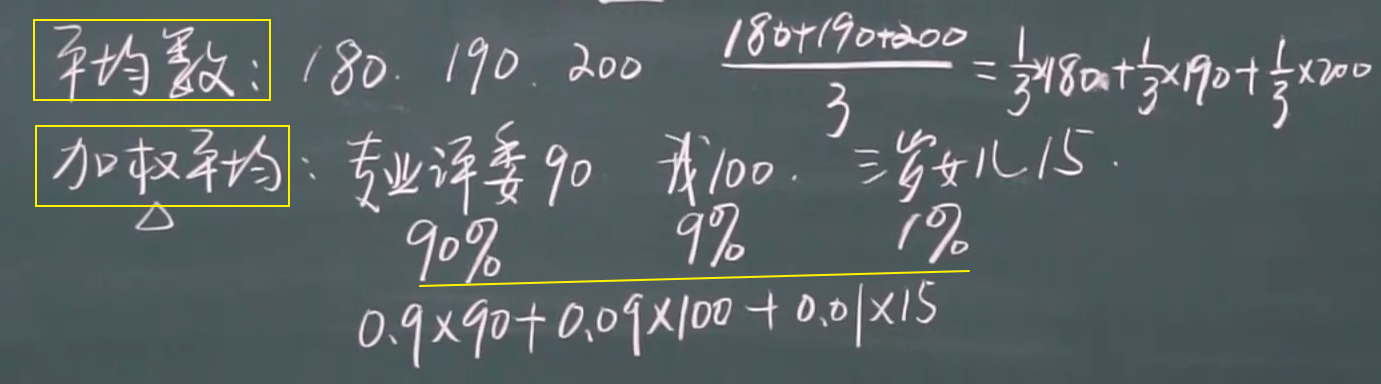 平均数: 180. 190. 200 (180+190+200)/3 = 1/3×180+1/3×190+1/3×200
加权平均: 专业评委90 我100. 三岁女儿15.
90% 9% 1%
0.9×90+0.09×100+0.01×15